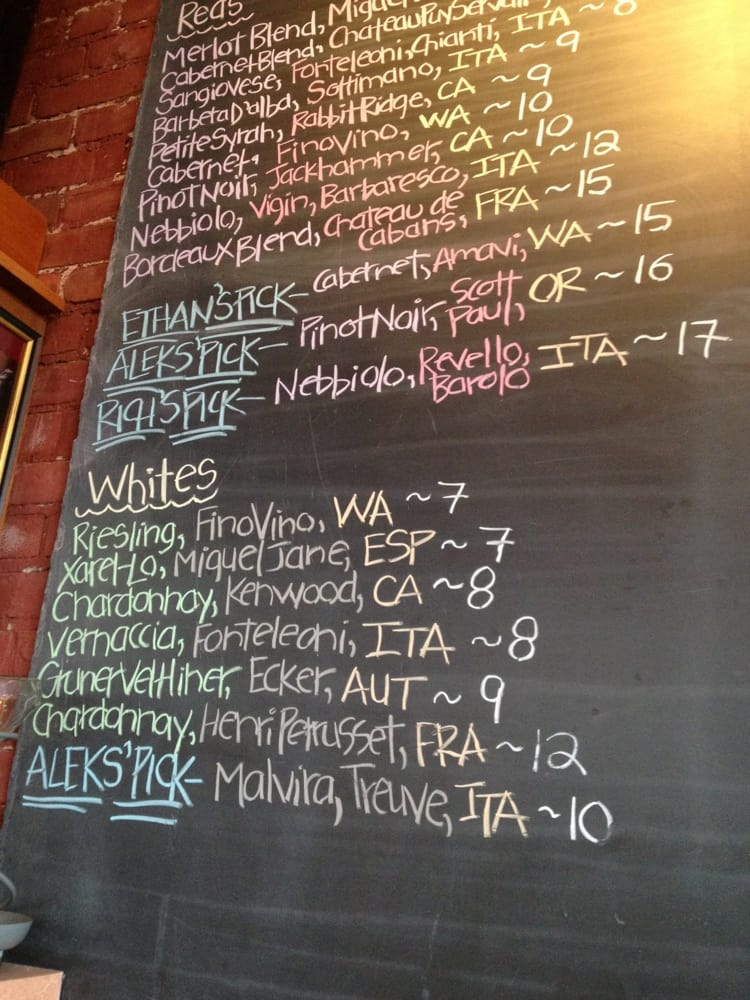 Reds
Merlot Blend,
Cabernet Blend, Chateau Puy Servain,
Sangiovese, Fonteleoni, Chianti, ITA ~ 8
Barbera D'alba, Sottimano, ITA ~ 9
Petite Syrah, Rabbit Ridge, CA ~ 9
Cabernet, Fino Vino, WA ~ 10
Pinot Noir, Jackhammer, CA ~ 10
Nebbiolo, Vigin, Barbaresco, ITA ~ 12
Bordeaux Blend, Chateau de Cabans, FRA ~ 15
ETHAN'S PICK - Cabernet, Amavi, WA ~ 15
ALEKS' PICK - Pinot Noir, Scott Paul, OR ~ 16
PICK - Nebbiolo, Revello, Barolo ITA ~ 17
Whites
Riesling, Fino Vino, WA ~ 7
Xarel-Lo, Miguel Jane, ESP ~ 7
Chardonnay, Kenwood, CA ~ 8
Vernaccia, Fonteleoni, ITA ~ 8
Gruner Veltliner, Ecker, AUT ~ 9
Chardonnay, Henri Perrusset, FRA ~ 12
ALEKS' PICK - Malvira, Treuve, ITA ~ 10